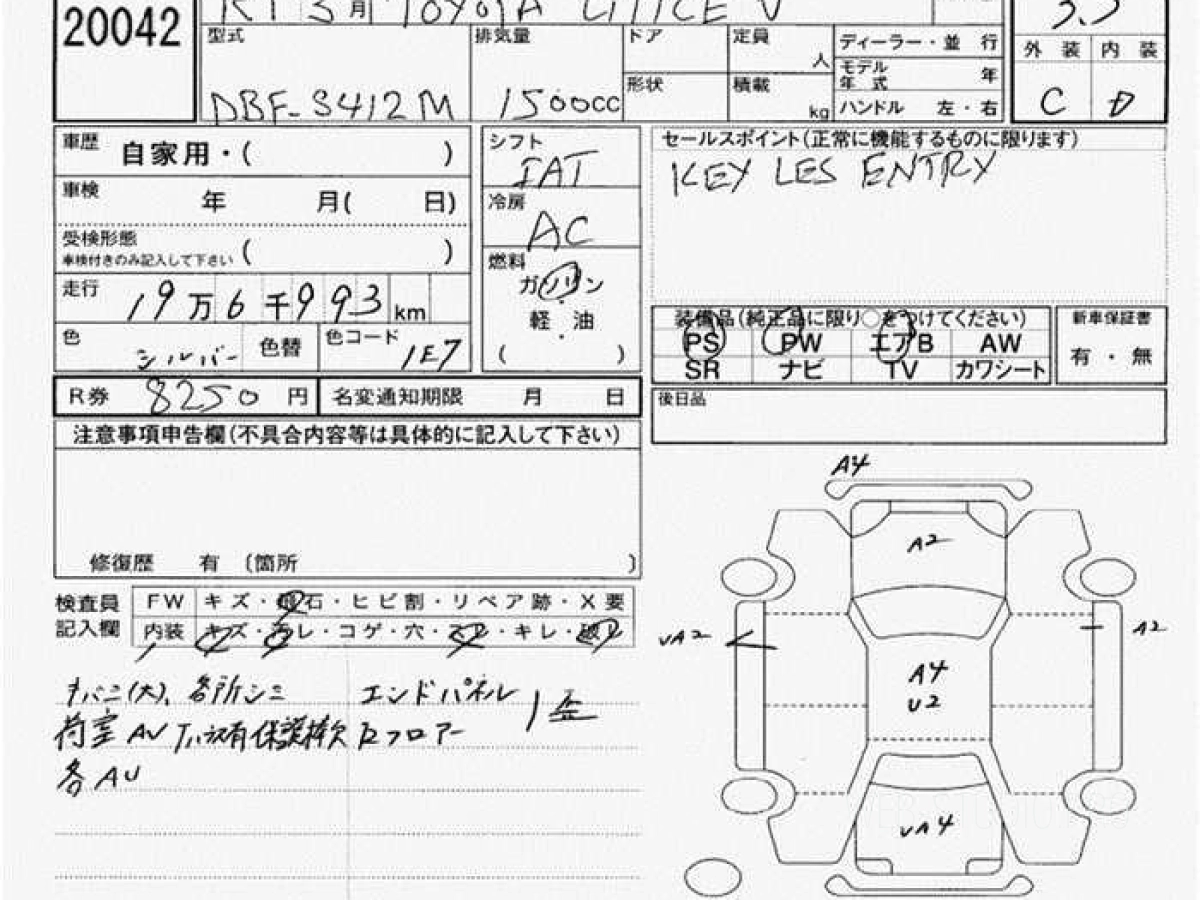 20042
R1 3月 TOYOTA LITTCE V
型式 排気量 ドア 定員 人 ディーラー・並 行
3.5
DBF-S412M 1500cc 形状 積載 kg モデル年式 年
ハンドル 左・右
外装 内装
C D
車歴 自家用・( )
車検 年 月( 日)
受検形態 ( )
車検付きのみ記入して下さい
走行 19万6千993km
色 シルバー 色替 色コード 1E7
シフト IAT
冷房 AC
燃料 ガソリン
軽・油
( )
セールスポイント(正常に機能するものに限ります)
KEY LES ENTRY
装備品(純正品に限り○をつけてください)
PS PW エアB AW
SR ナビ TV カワシート
新車保証書
有・無
R券 8250 円 名変通知期限 月 日
後日品
注意事項申告欄(不具合内容等は具体的に記入して下さい)
修復歴 有 〔箇所 〕
検査員 FW キズ・飛石・ヒビ割・リペア跡・X要
記入欄 内装 キズ・ヨゴレ・コゲ・穴・スレ・キレ・破レ
タバコ(大)、各所シミ
荷室AU 下廻有 保護棒欠
各AU
エンドパネル
Rフロアー
歪
A4
A2
UA2
A2
A4
U2
UA4